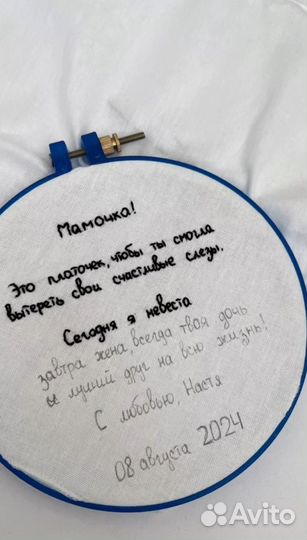 Мамочка!
Это платочек, чтобы ты смогла
вытереть свои счастливые слезы.
Сегодня я невеста
завтра жена, всегда твоя дочь
и лучший друг на всю жизнь!
С любовью, Настя
08 августа 2024
Avito